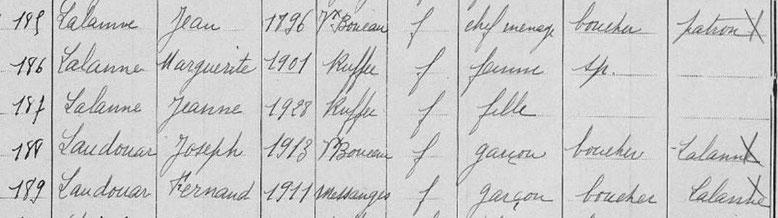 185 Lalanne Jean 1896 Vx Boucau f chef menage boucher patron X
186 Lalanne Marguerite 1901 Ruffec f femme sp.
187 Lalanne Jeanne 1928 Ruffec f fille
188 Laudouar Joseph 1913 Vx Boucau f garçon boucher Lalanne X
189 Laudouar Fernand 1911 Messanges f garçon boucher Lalanne X